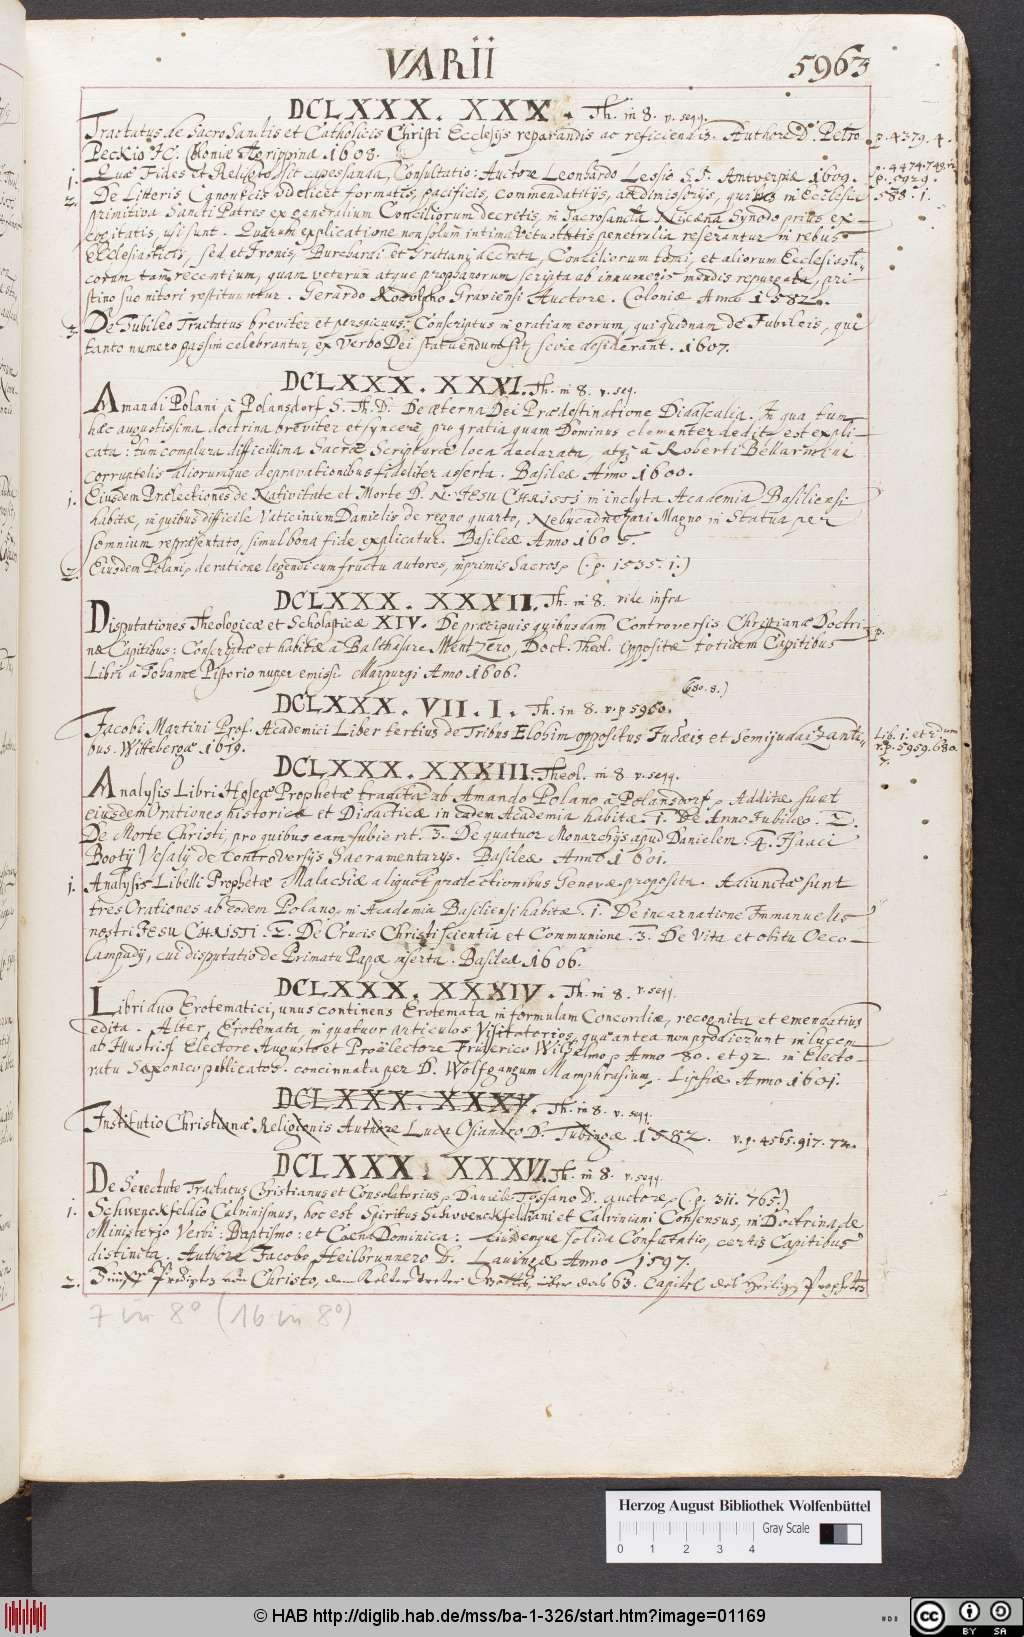 VARII
5963
DCLXXX. XXX. Th. in 8. v. seqq.
Tractatus de Sacro Sanctis et Catholicis Christi Ecclesys reparandis ac reficiendis. Authore D. Petro
p. 4379. 4.
Peckio JC. Coloniæ Agrippinæ 1608.
1. Quæ Fides et Religio sit capessenda, Consultatio: Auctore Leonhardo Lessio S. J. Antverpiæ 1609.
2. De Litteris Canonicis videlicet formatis, pacificis, commendatitys, ac dimissorys, quibus in Ecclesia
588. 1.
primitiva Sancti Patres ex generalium Conciliorum decretis, in Sacrosancta Nicæna Synodo prius ex-
cogitatis, usi sunt. Quarum explicatione non solum intima vetustatis penetralia reserantur in rebus
Ecclesiasticis, sed et Ivonis, Burchardi et Gratiani decreta, Conciliorum tomi, et aliorum Ecclesiasti-
corum tam recentium, quam veterum atque prophanorum scripta ab innumeris mendis repurgata, pri-
stino suo nitori restituuntur. Gerardo Rodolpho Graviensi Auctore. Coloniæ Anno 1582.
3. De Jubileo Tractatus breviter et perspicuus: Conscriptus in gratiam eorum, qui quidnam de Jubileis, qui
tanto numero passim celebrantur, ex Verbo Dei statuendum sit, scire desiderant. 1607.
DCLXXX. XXXI. Th. in 8. v. seq.
Amandi Polani à Polansdorf S. Th. D. De æterna Dei Prædestinatione Didascalia. In qua tum
hæc augustissima doctrina breviter et syncere, pro gratia quam Dominus clementer dedit, est expli-
cata: tum complura difficillima Sacræ Scripturæ loca declarata, atq; à Roberti Bellarmini
corruptelis aliorumque depravationibus fideliter asserta. Basileæ Anno 1600.
1. Eiusdem Prælectiones de Nativitate et Morte D. N. JESU CHRISTI in inclyta Academia Basiliensi
habitæ, in quibus difficile Vaticinium Danielis de regno quarto, Nebucadnezari Magno in Statua per
somnium repræsentato, simul bona fide explicatur. Basileæ Anno 1606.
2. Eiusdem Polani, de ratione legendi cum fructu autores, inprimis Sacros, (. p. 1535. 1.)
DCLXXX. XXXII. Th. in 8. vide infra
Disputationes Theologicæ et Scholasticæ XIV. De præcipuis quibusdam Controversis Christianæ Doctri-
p.
næ Capitibus: Conscriptæ et habitæ à Balthasare Mentzero, Doct. Theol. oppositæ totidem Capitibus
Libri à Johanne Pistorio nuper emissi. Marpurgi Anno 1606.
680. 8.)
DCLXXX. VII. I. Th. in 8. v. p 5960.
Jacobi Martini Prof. Academici Liber tertius de Tribus Elohim oppositus Judæis et semijudaizanti-
Lib. 1. et 2dum
bus. Wittebergæ 1619.
v. p. 5959. 680.
7.
DCLXXX. XXXIII. Theol. in 8 v. seqq.
Analysis Libri Hoseæ Prophetæ tradita ab Amando Polano à Polansdorf, Additæ sunt
eiusdem Orationes historicæ et Didacticæ in eadem Academia habitæ. 1. De Anno Jubileo. 2.
De Morte Christi, pro quibus eam subierit. 3. De quatuor Monarchys apud Danielem. 4. Isaaci
Booty Vesaly de Controversys Sacramentarys. Basileæ Anno 1601.
1. Analysis Libelli Prophetæ Malachiæ aliquot prælectionibus Genevæ proposita. Adiunctæ sunt
tres Orationes ab eodem Polano in Academia Basiliensi habitæ. 1. De incarnatione Immanuelis
nostri JESU CHRISTI. 2. De Crucis Christi scientia et Communione. 3. De Vita et obitu Oeco-
lampady, cui disputatio de Primatu Papæ inserta. Basileæ 1606.
DCLXXX. XXXIV. Th. in 8. v. seqq.
Libri duo Erotematici, unus continens Erotemata in formulam Concordiæ, recognita et emendatius
edita. Alter, Erotemata in quatuor articulos Visitatorios, quæ antea non prodierunt in lucem
ab Illustriss. Electore Augusto et Proëlectore Friderico Wilhelmo, Anno 80. et 92. in Electo-
ratu Saxonico publicatos. concinnata per D. Wolfgangum Mamphrasium. Lipsiæ Anno 1601.
DCLXXX. XXXV. Th. in 8. v. seqq.
Institutio Christianæ Religionis Authore Luca Osiandro D. Tubingæ 1582. v. p. 4565. 917. 72.
DCLXXX. XXXVI. Th. in 8. v. seqq.
De Senectute Tractatus Christianus et Consolatorius, Daniele Tossano D. auctore (. p. 311. 765.)
1. Schwenckfeldio Calvinismus, hoc est Spiritus Schwenckfeldiani et Calviniani Consensus, in Doctrina de
Ministerio Verbi: Baptismo: et Coena Dominica: Eiusdenque solida Confutatio, certis Capitibus
distincta. Authore Jacobo Heilbrunnero D. Lauingæ Anno 1597.
2. Predigten von Christo, über das 63. Capitel des Heiligen Propheten
7 in 8° (16 in 8°)
Herzog August Bibliothek Wolfenbüttel
Gray Scale
0 1 2 3 4
© HAB http://diglib.hab.de/mss/ba-1-326/start.htm?image=01169
cc BY SA